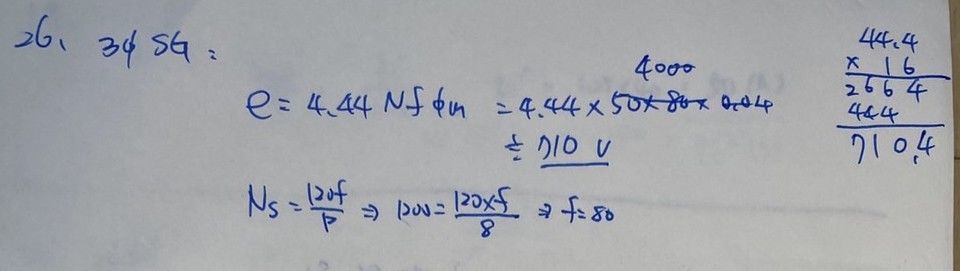 26、 3φ SG :
e = 4.44 N f φm = 4.44 × 50 × 80 × 0.04
4000
≒ 710 V
Ns = 120f / P ⇒ 1200 = 120×f / 8 ⇒ f = 80
44.4
× 16
2664
444
710.4